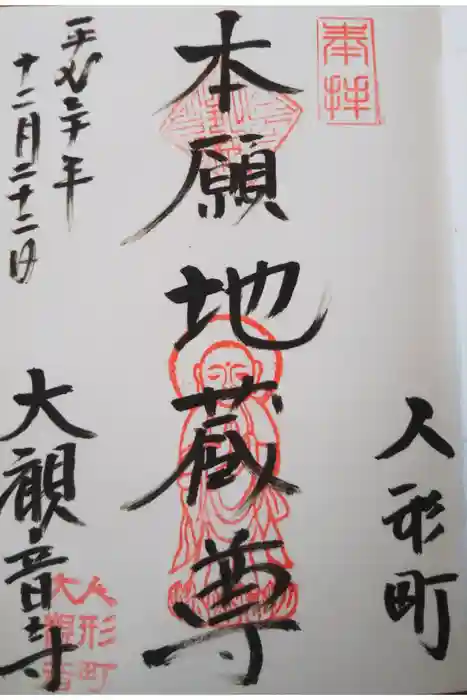 奉拝
人形町
本願地蔵尊
平成三十年
十二月二十二日
大観音寺
人形町
大観音